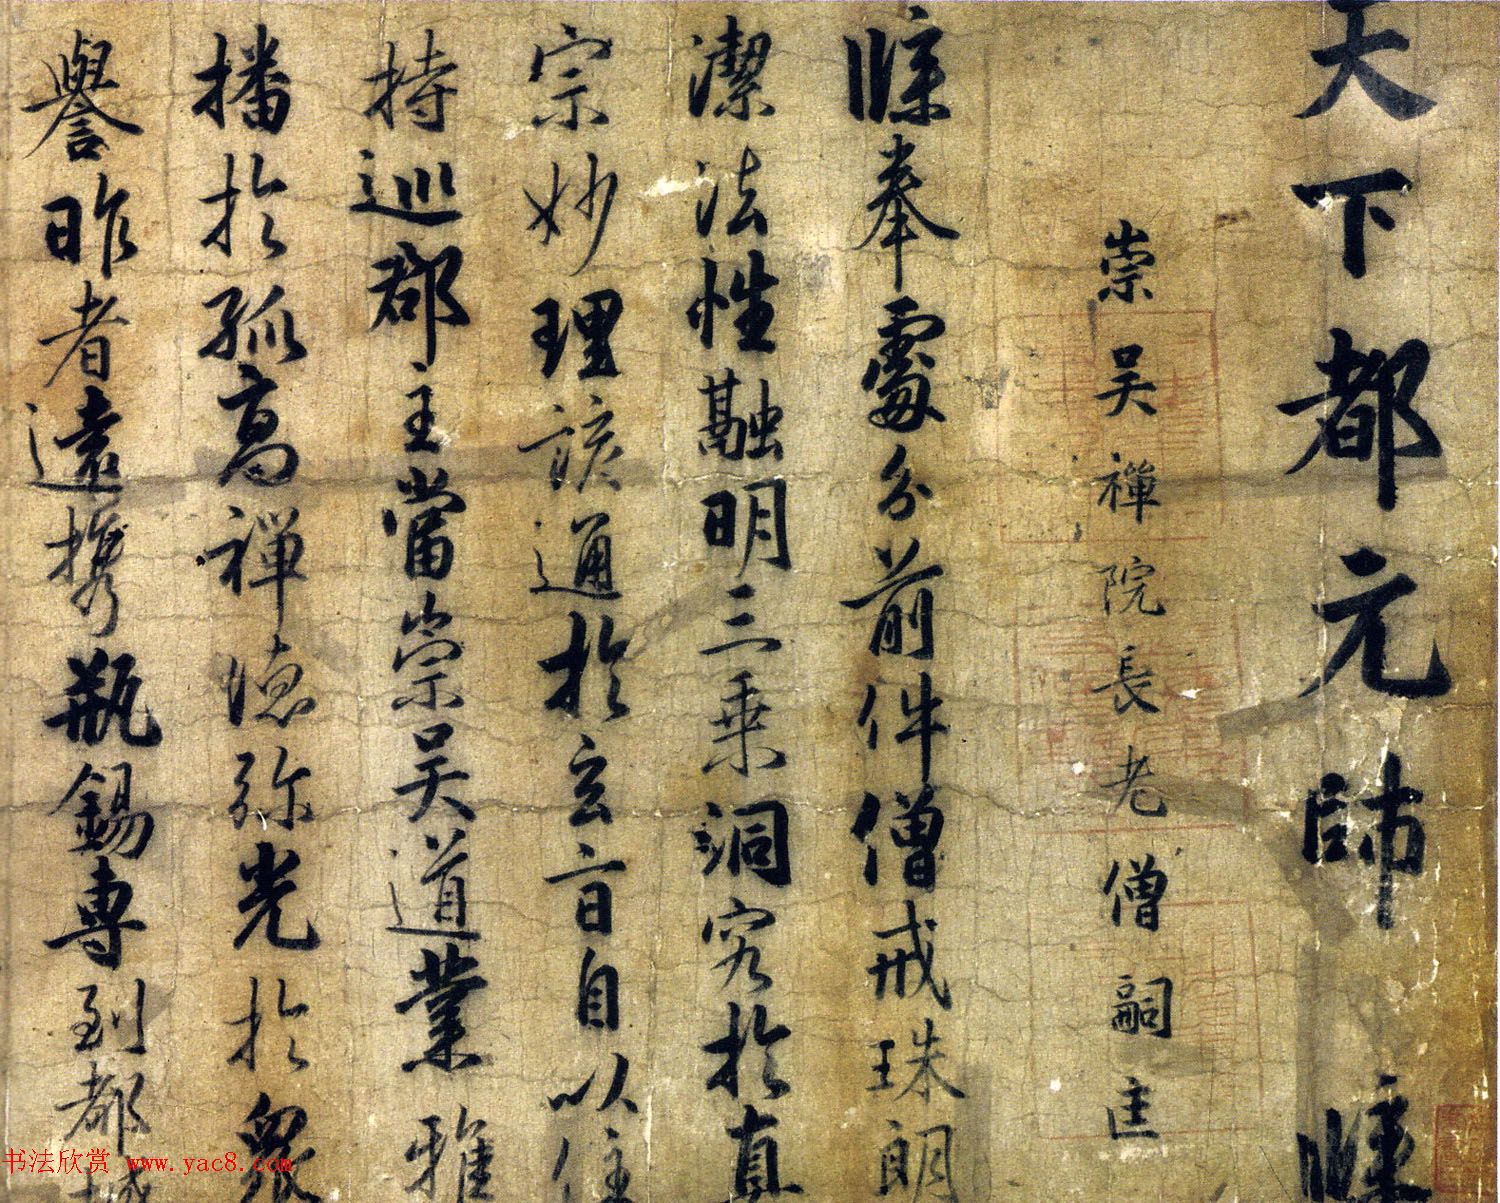 天下都元帥 牒
崇吳禪院長老僧嗣匡
牒奉處分前件僧戒珠朗
潔法性融明三乘洞究於真
宗妙理該通於玄旨自以住
持巡郡主當崇吳道業雅
播於孤高禪德弥光於眾
譽昨者遠携瓶錫專到都城
书法欣赏 www.yac8.com